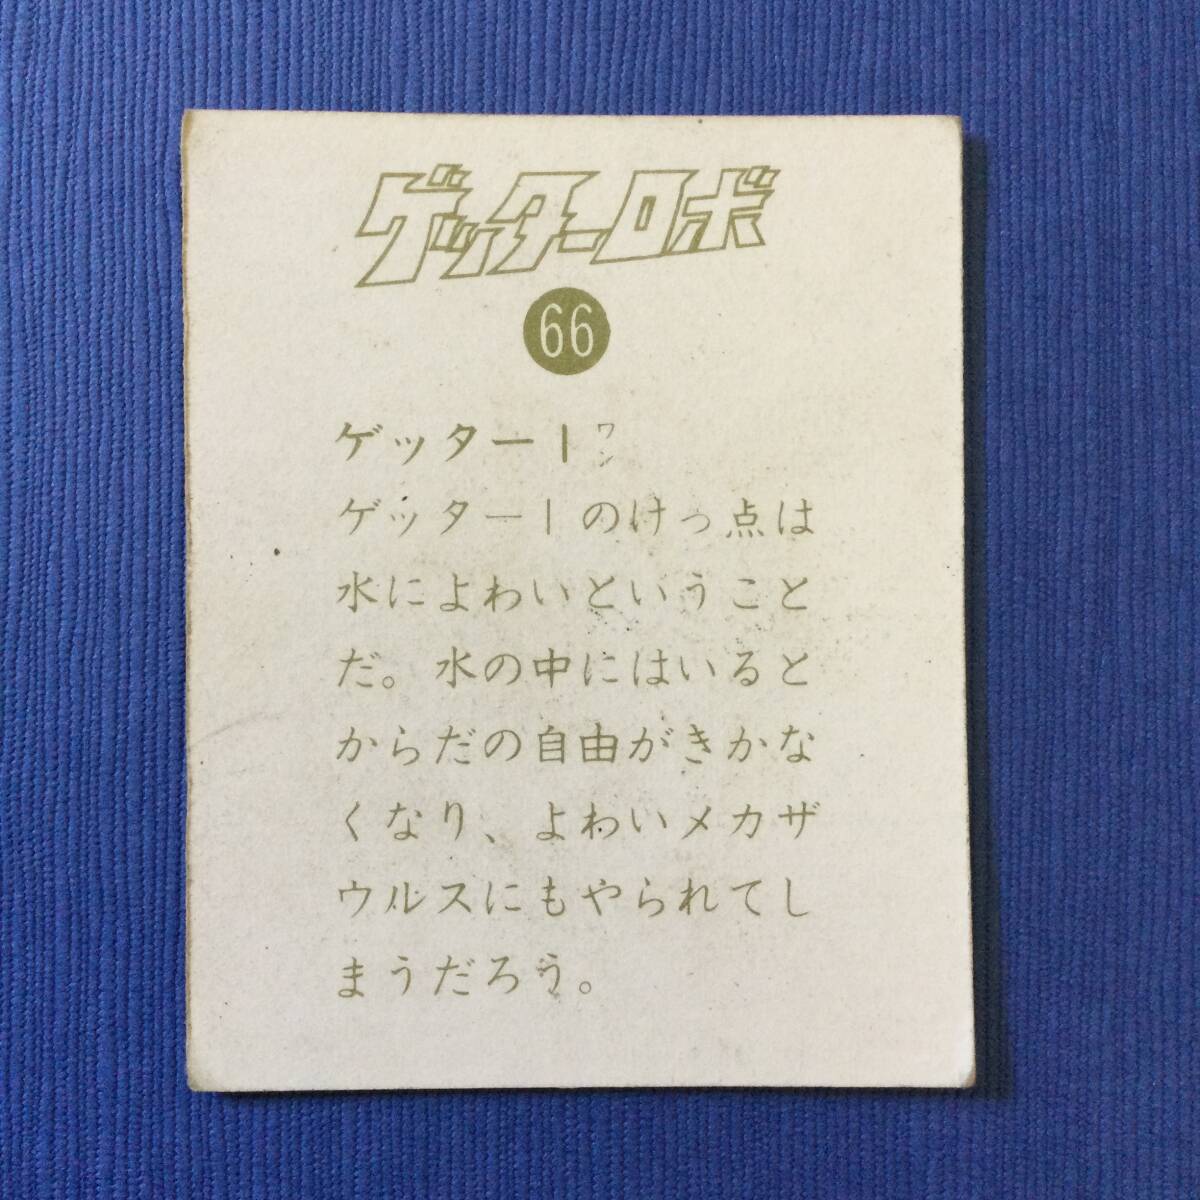 ゲッターロボ
66
ゲッター1ワン
ゲッター1のけっ点は
水によわいということ
だ。水の中にはいると
からだの自由がきかな
くなり、よわいメカザ
ウルスにもやられてし
まうだろう。